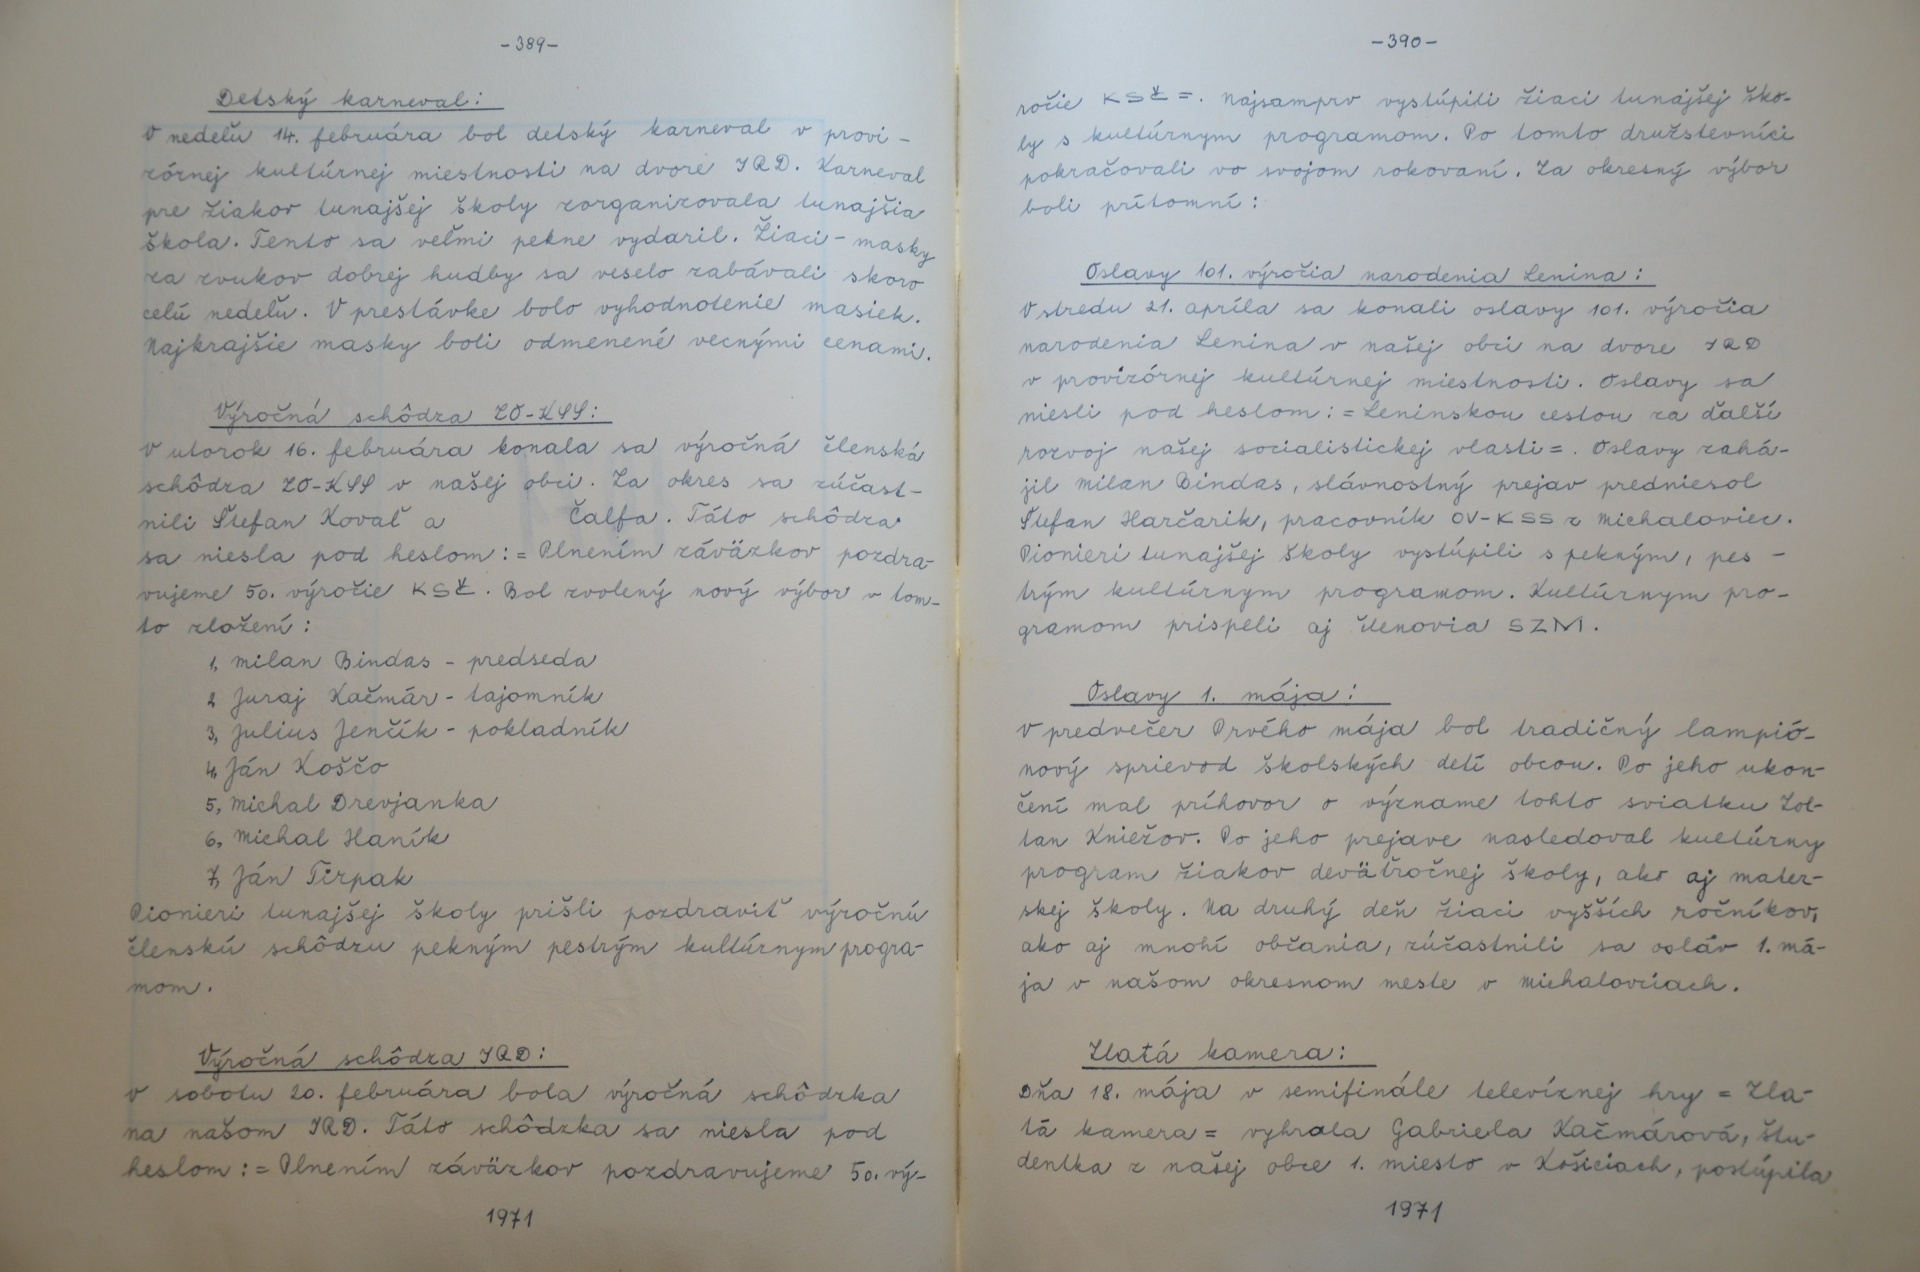 -389-
Detský karneval:
V nedeľu 14. februára bol detský karneval v provi-
zórnej kultúrnej miestnosti na dvore JRD. Karneval
pre žiakov tunajšej školy zorganizovala tunajšia
škola. Tento sa veľmi pekne vydaril. Žiaci-masky
za zvukov dobrej hudby sa veselo zabávali skoro
celú nedeľu. V prestávke bolo vyhodnotenie masiek.
Najkrajšie masky boli odmenené vecnými cenami.
Výročná schôdza ZO-KSS:
V utorok 16. februára konala sa výročná členská
schôdza ZO-KSS v našej obci. Za okres sa zúčast-
nili Štefan Kovaľ a Čalfa. Táto schôdza
sa niesla pod heslom := Plnením záväzkov pozdra-
vujeme 50. výročie KSČ. Bol zvolený nový výbor v tom-
to zložení:
1, Milan Bindas - predseda
2 Juraj Kačmár - tajomník
3, Julius Jenčík - pokladník
4, Ján Koščo
5, Michal Drevjanka
6, Michal Haník
7, Ján Tirpak
Pionieri tunajšej školy prišli pozdraviť výročnú
členskú schôdzu pekným pestrým kultúrnym progra-
mom.
Výročná schôdza JRD:
V sobotu 20. februára bola výročná schôdzka
na našom JRD. Táto schôdzka sa niesla pod
heslom := Plnením záväzkov pozdravujeme 50. vý-
1971
-390-
ročie KSČ =. Najsamprv vystúpili žiaci tunajšej ško-
ly s kultúrnym programom. Po tomto družstevníci
pokračovali vo svojom rokovaní. Za okresný výbor
boli prítomní:
Oslavy 101. výročia narodenia Lenina:
V stredu 21. apríla sa konali oslavy 101. výročia
narodenia Lenina v našej obci na dvore JRD
v provizórnej kultúrnej miestnosti. Oslavy sa
niesli pod heslom: = Leninskou cestou za ďalší
rozvoj našej socialistickej vlasti =. Oslavy zahá-
jil Milan Bindas, slávnostný prejav predniesol
Štefan Harčarik, pracovník OV-KSS z Michaloviec.
Pionieri tunajšej školy vystúpili s pekným, pes-
trým kultúrnym programom. Kultúrnym pro-
gramom prispeli aj členovia SZM.
Oslavy 1. mája:
V predvečer Prvého mája bol tradičný lampió-
nový sprievod školských detí obcou. Po jeho ukon-
čení mal príhovor o význame tohto sviatku Zol-
tan Kniežov. Po jeho prejave nasledoval kultúrny
program žiakov deväťročnej školy, ako aj mater-
skej školy. Na druhý deň žiaci vyšších ročníkov,
ako aj mnohí občania, zúčastnili sa osláv 1. má-
ja v našom okresnom meste v Michalovciach.
Zlatá kamera:
Dňa 18. mája v semifinále televíznej hry = Zla-
tá kamera = vyhrala Gabriela Kačmárová, štu-
dentka z našej obce 1. miesto v Košiciach, postúpila
1971